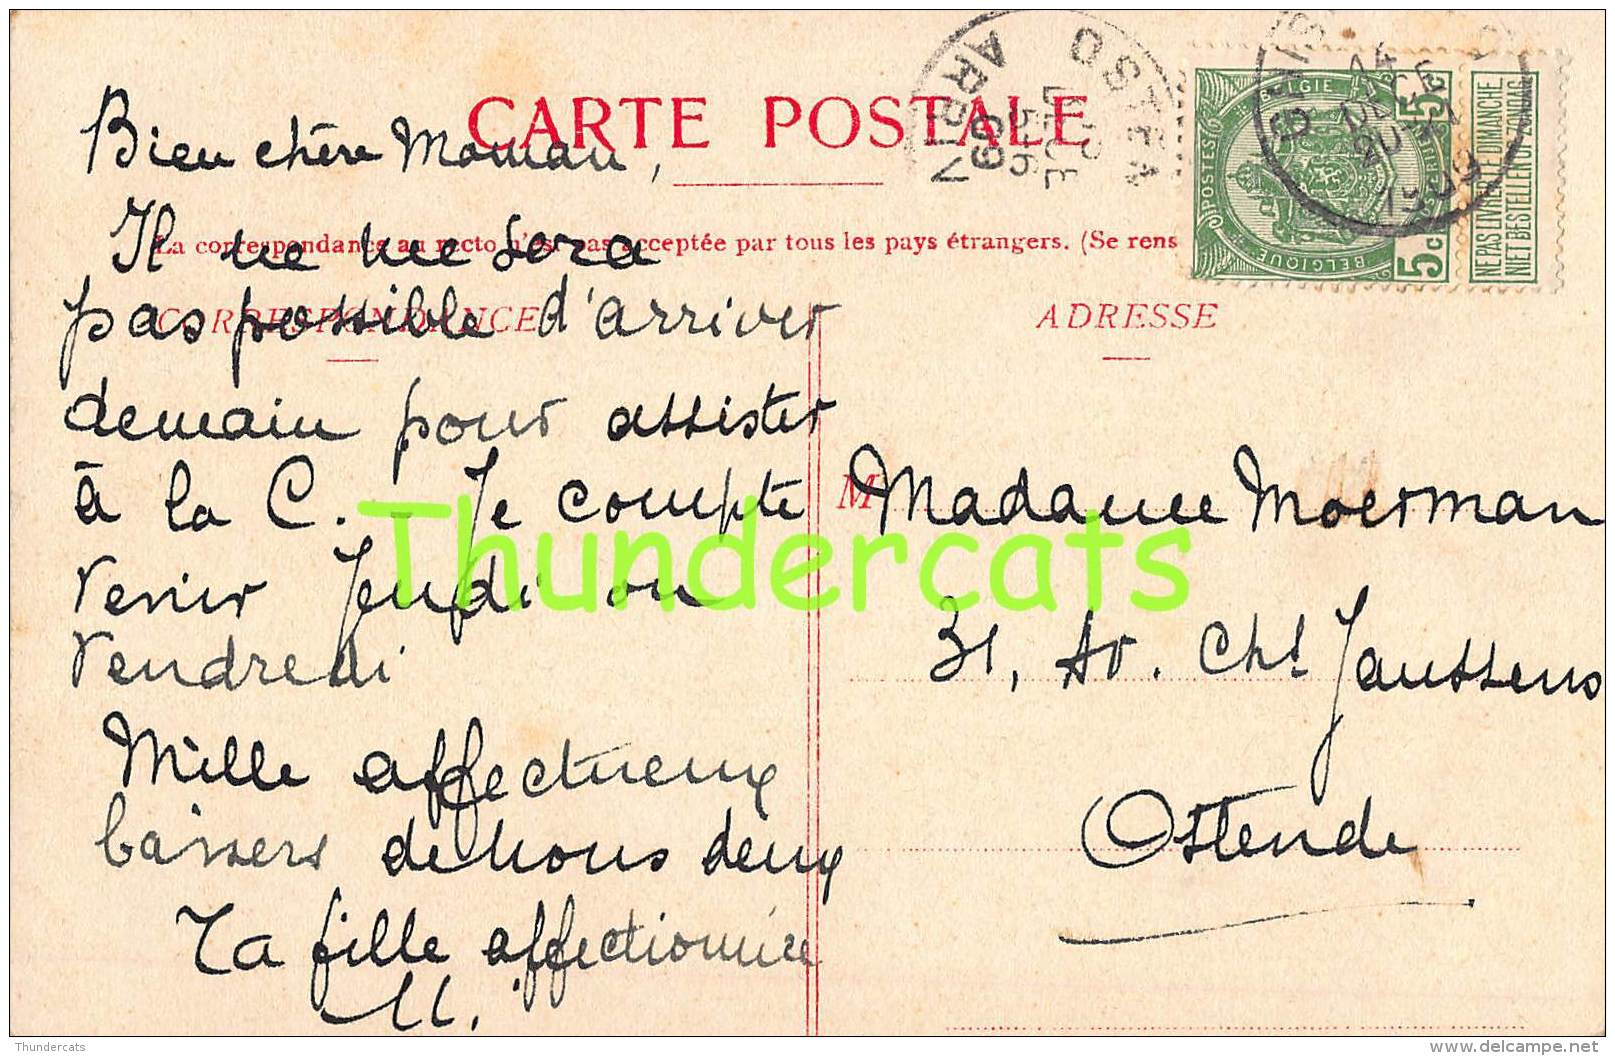 CARTE POSTALE
La correspondance au recto n'est pas acceptée par tous les pays étrangers. (Se rens
CORRESPONDANCE
Bien chère Maman,
Il ne me sera
pas possible d'arriver
demain pour assister
à la C. Je compte
venir Jeudi ou
Vendredi
Mille affectueux
baisers de nous deux
Ta fille affectionnée
M.
ADRESSE
M
Madame Moerman
31, Av. Chl Janssens
Ostende
OSTEN
ARRIV
09
14
1909
BELGIE
POSTES
BELGIQUE
5 c
5
NE PAS LIVRER LE DIMANCHE
NIET BESTELLEN OP ZONDAG
Thundercats
Thundercats
www.delcampe.net